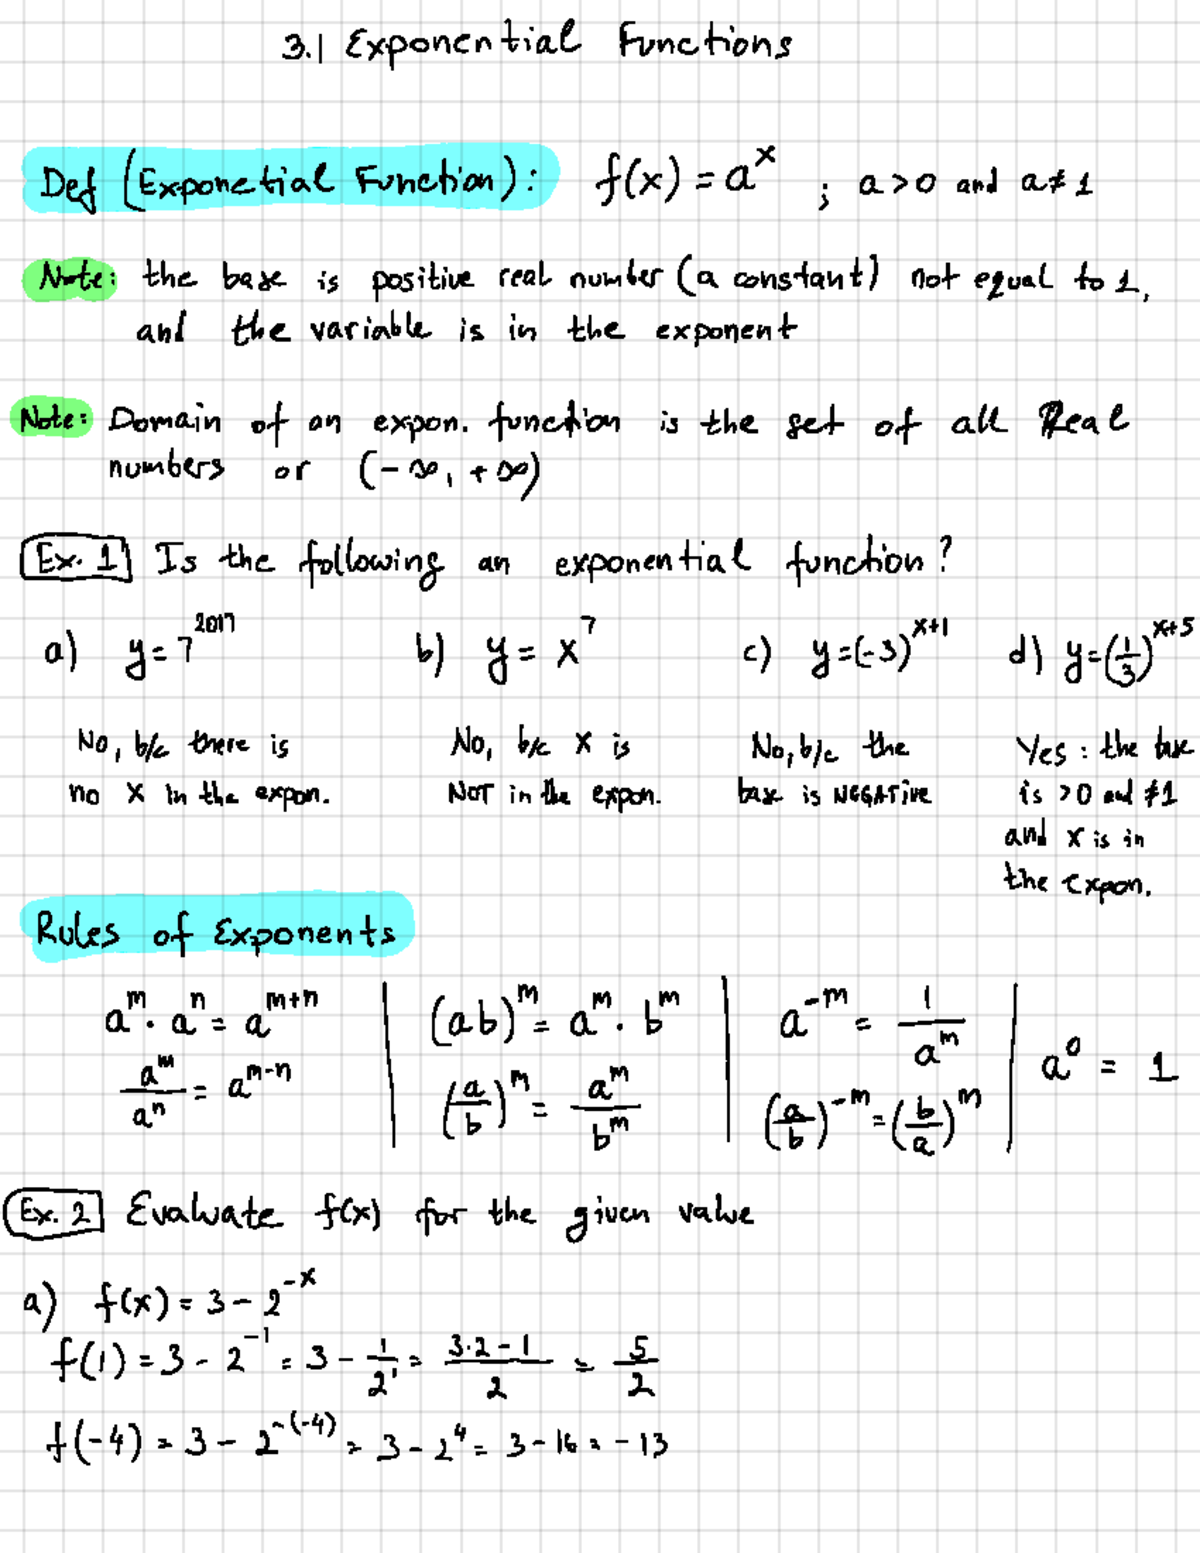 3.1 Exponential Functions
Def (Exponetial Function): f(x) = a^x ; a>0 and a≠1
Note: the base is positive real number (a constant) not equal to 1,
and the variable is in the exponent
Note: Domain of an expon. function is the set of all Real
numbers or (-∞, +∞)
Ex. 1 Is the following an exponential function?
a) y=7^2017 b) y = x^7 c) y=(-3)^x+1 d) y=(1/3)^x+5
No, b/c there is No, b/c x is No, b/c the Yes : the base
no x in the expon. NOT in the expon. base is NEGATIVE is >0 and ≠1
and x is in
the expon.
Rules of Exponents
a^m . a^n = a^m+n | (ab)^m = a^m . b^m | a^-m = 1/a^m | a^0 = 1
a^m/a^n = a^m-n | (a/b)^m = a^m/b^m | (a/b)^-m = (b/a)^m
Ex. 2 Evaluate f(x) for the given value
a) f(x) = 3 - 2^-x
f(1) = 3 - 2^-1 = 3 - 1/2^1 = 3·2-1/2 = 5/2
f(-4) = 3 - 2^-(-4) = 3 - 2^4 = 3 - 16 = -13